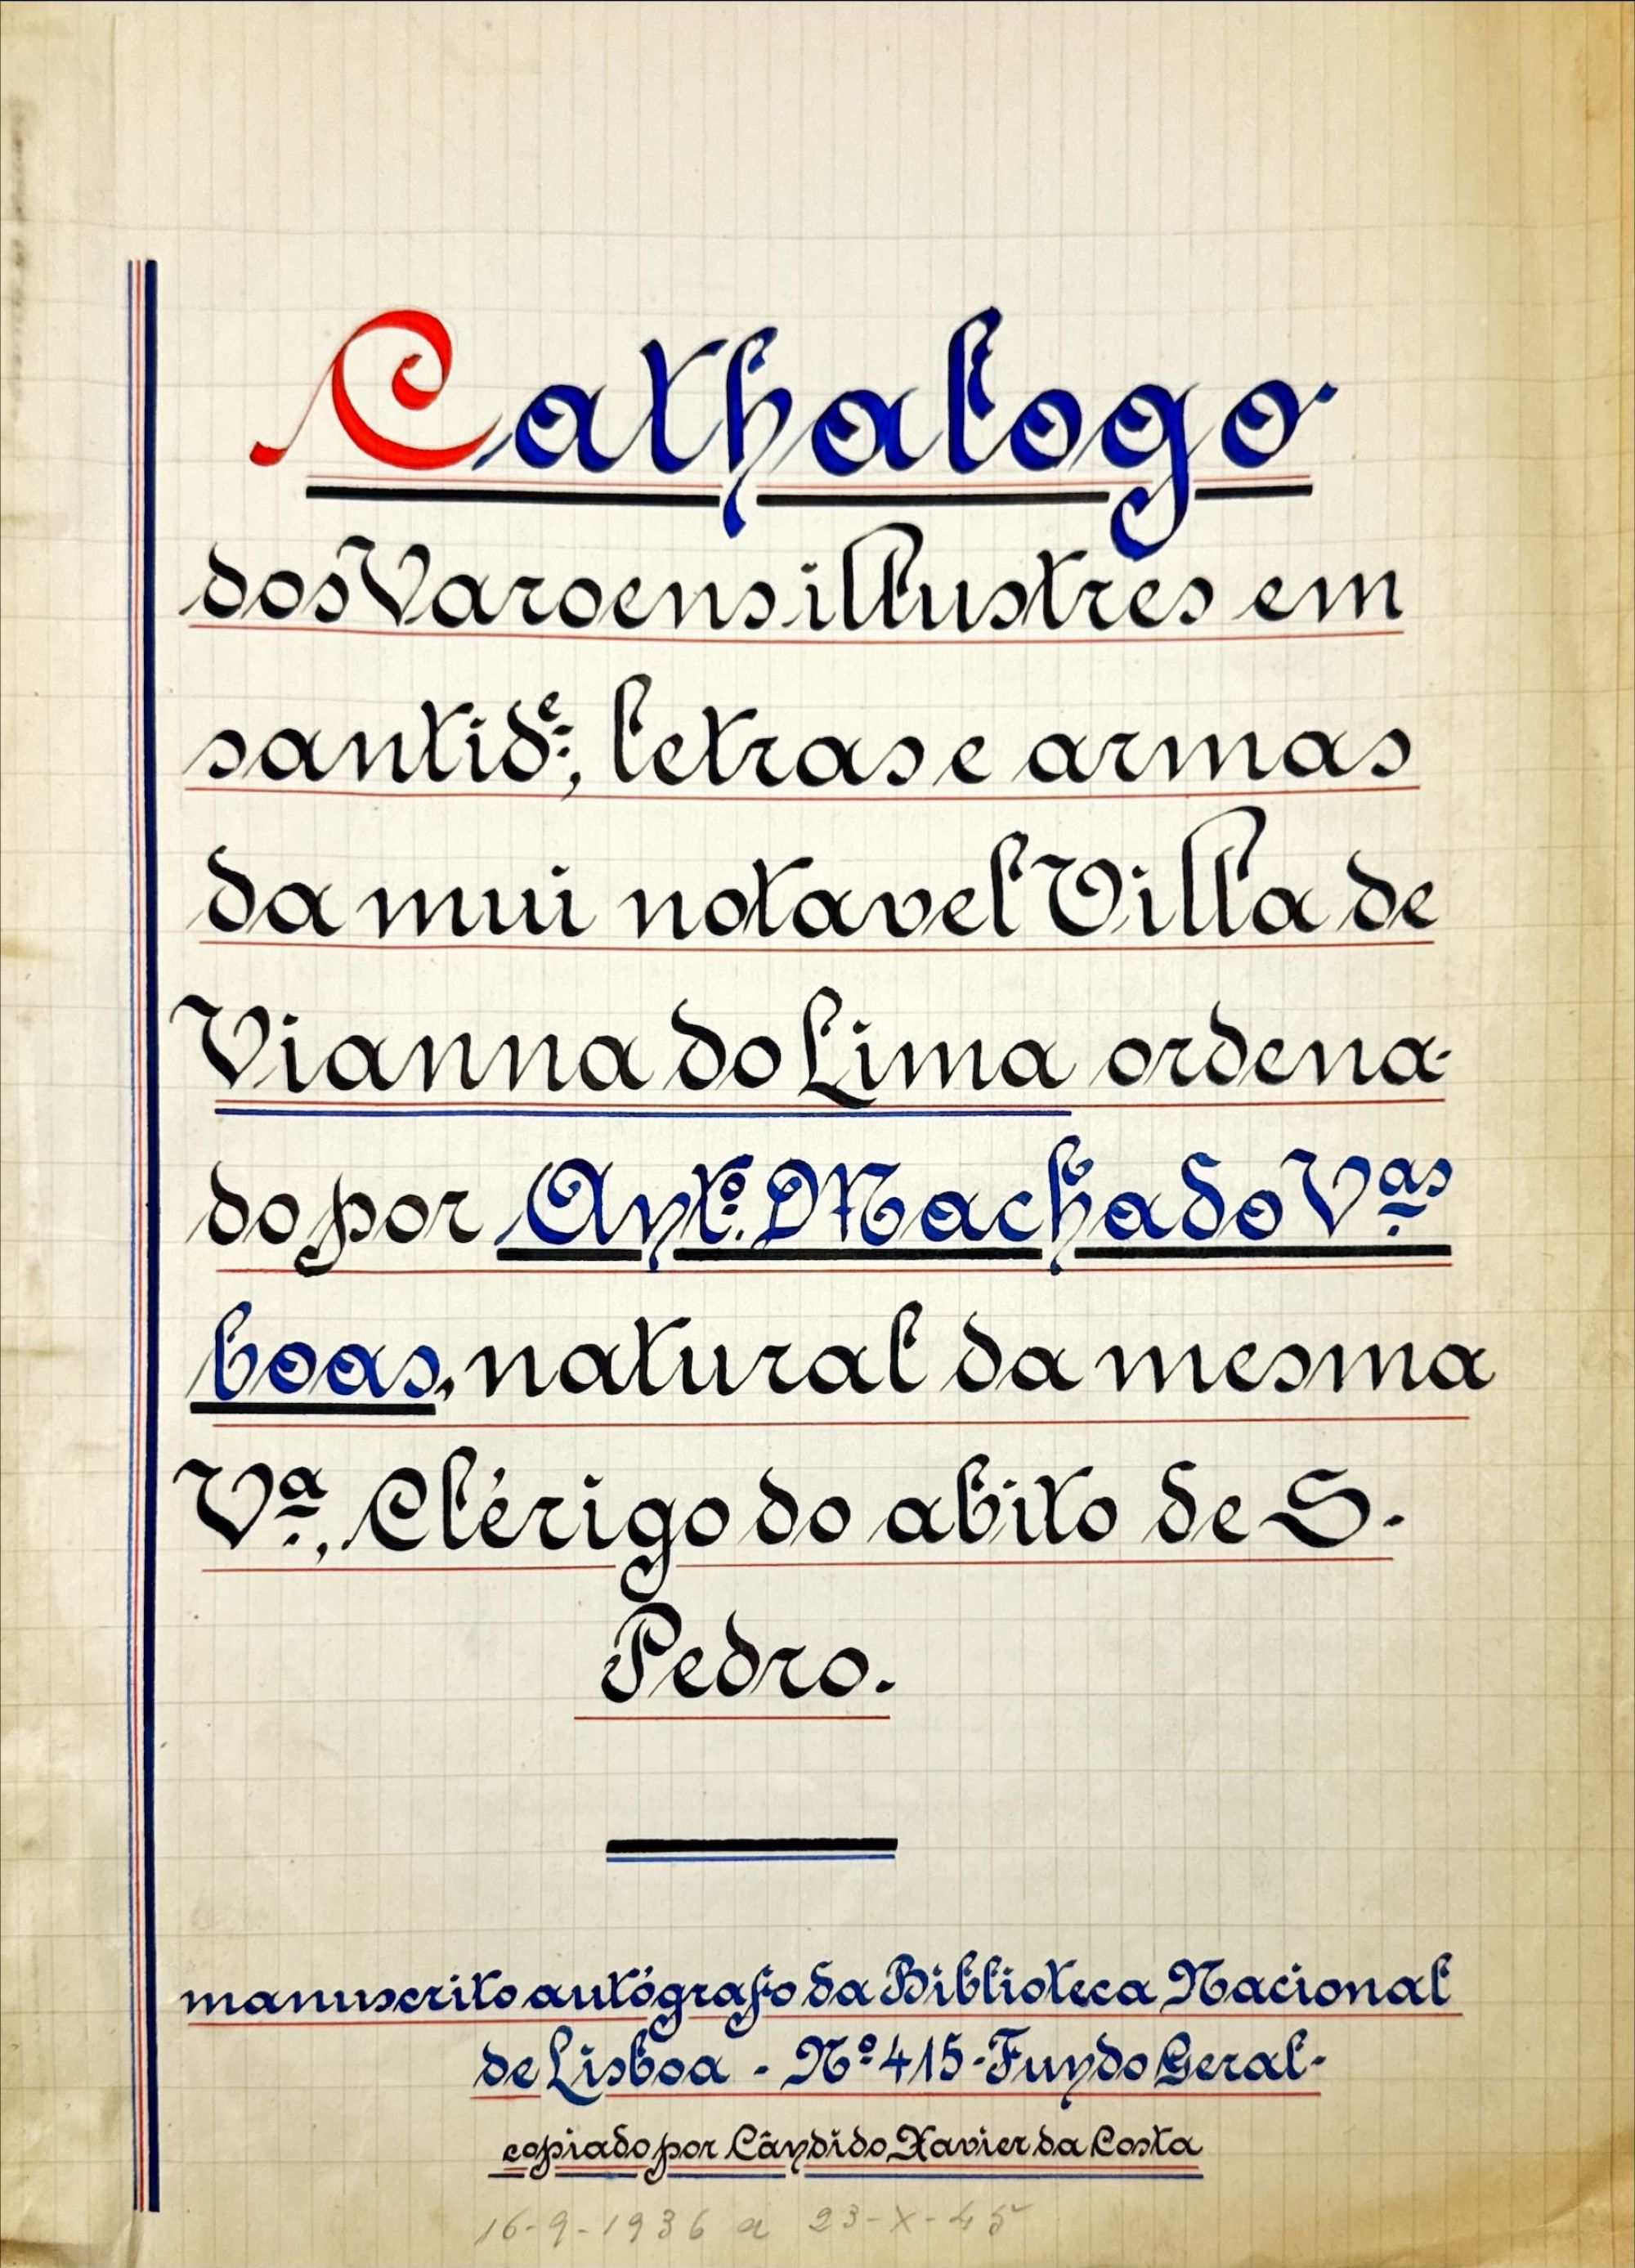 Cathalogo
dos Varoens illustres em
santid.e, letras e armas
da mui notavel Villa de
Vianna do Lima ordena-
do por Ant.º Machado V.as
boas, natural da mesma
V.ª, Clérigo do abito de S.
Pedro.
manuscrito autógrafo da Biblioteca Nacional
de Lisboa - Nº 415 - Fundo Geral-
copiado por Cândido Xavier da Costa
16-9-1936 a 23-X-45